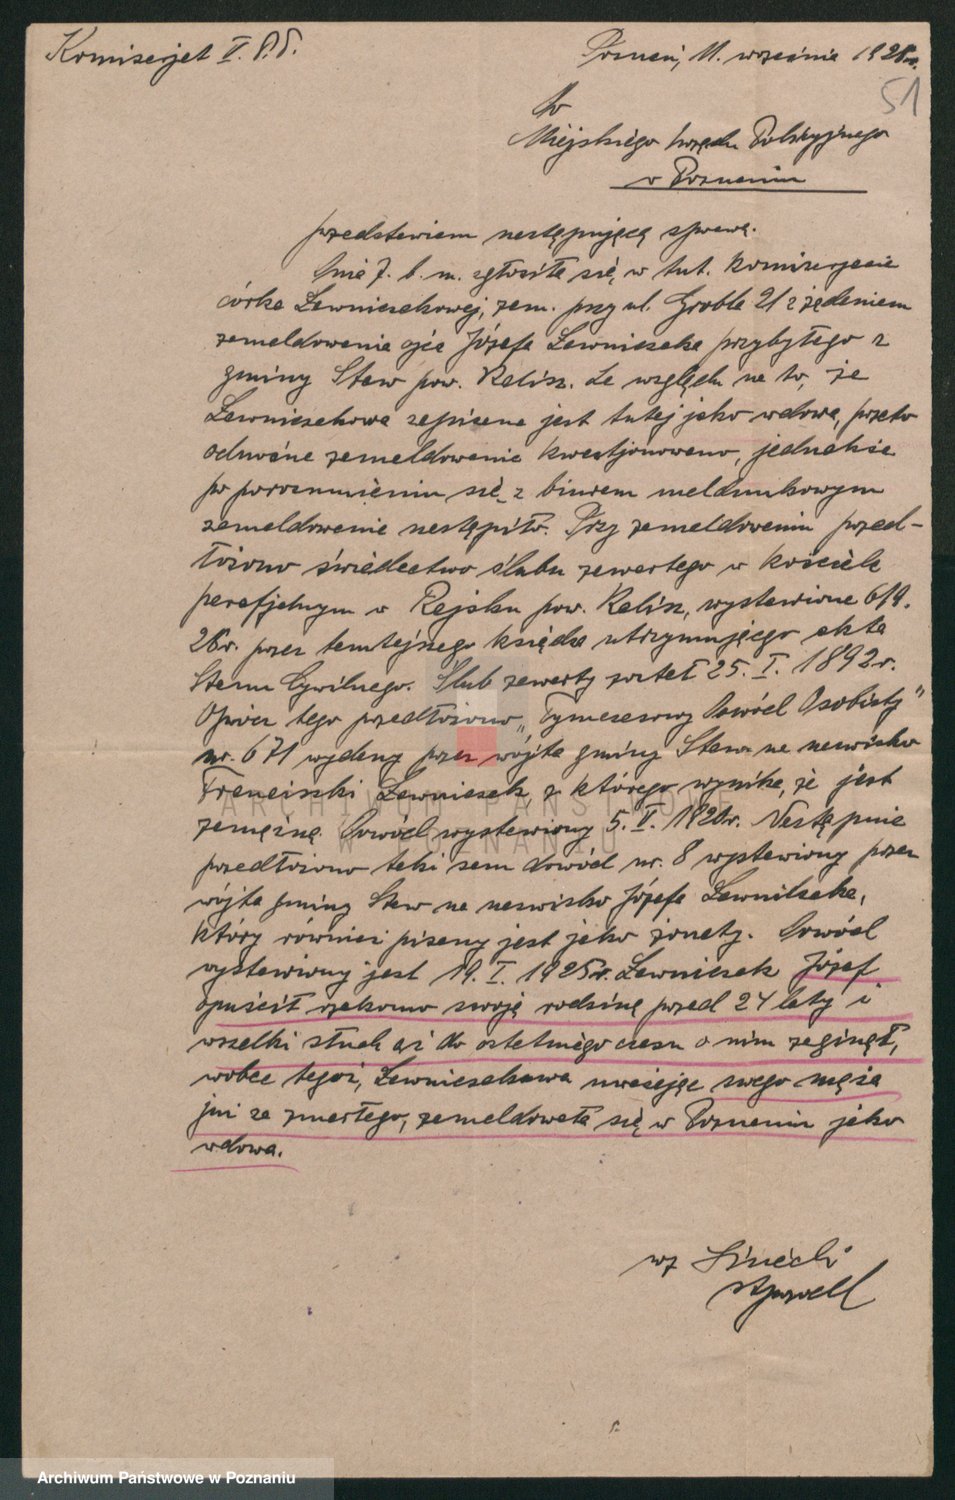 Komisarjat V. P.P.
Poznań, 11. września 1926r.
51
Do
Miejskiego Urzędu Policyjnego
w Poznaniu
Przedstawiam następującą sprawę.
Dnia 7. b. m. zgłosiła się w tut. Komisarjacie
córka Ławniczakowej, zam. przy ul. Grobla 21 z żądaniem
zameldowania ojca Józefa Ławniczaka przybyłego z
gminy Staw pow. Kalisz. Ze względu na to, że
Ławniczakowa zapisana jest tutej jako wdowa, przeto
odnośne zameldowanie kwestjonowano, jednakże
po porozumieniu się z biurem meldunkowym
zameldowanie nastąpiło. Przy zameldowaniu przed-
łożono świadectwo ślubu zawartego w kościele
parafjalnym w Rajsku pow. Kalisz, wystawione 6/9.
26r. przez tamtejszego księdza utrzymującego akta
Stanu Cywilnego. Ślub zawarty został 25. I. 1892r.
Oprócz tego przedłożono „Tymczasowy Dowód Osobisty"
nr. 671 wydany przez wójta gminy Staw na nazwisko
Franciszki Ławniczak z którego wynika, że jest
zamężną. Dowód wystawiony 5. II. 1920r. Następnie
przedłożono taki sam dowód nr. 8 wystawiony przez
wójta gminy Staw na nazwisko Józefa Ławniczaka,
który również pisany jest jako żonaty. Dowód
wystawiony jest 19. I. 1925r. Ławniczak Józef
opuścił rzekomo swoją rodzinę przed 24 laty i
wszelki słuch aż do ostatniego czasu o nim zaginął,
wobec tegoż, Ławniczakowa uważając swego męża
już za zmarłego, zameldowała się w Poznaniu jako
wdowa.
wz
st. przod
ARCHIWUM PAŃSTWOWE
W POZNANIU
Archiwum Państwowe w Poznaniu